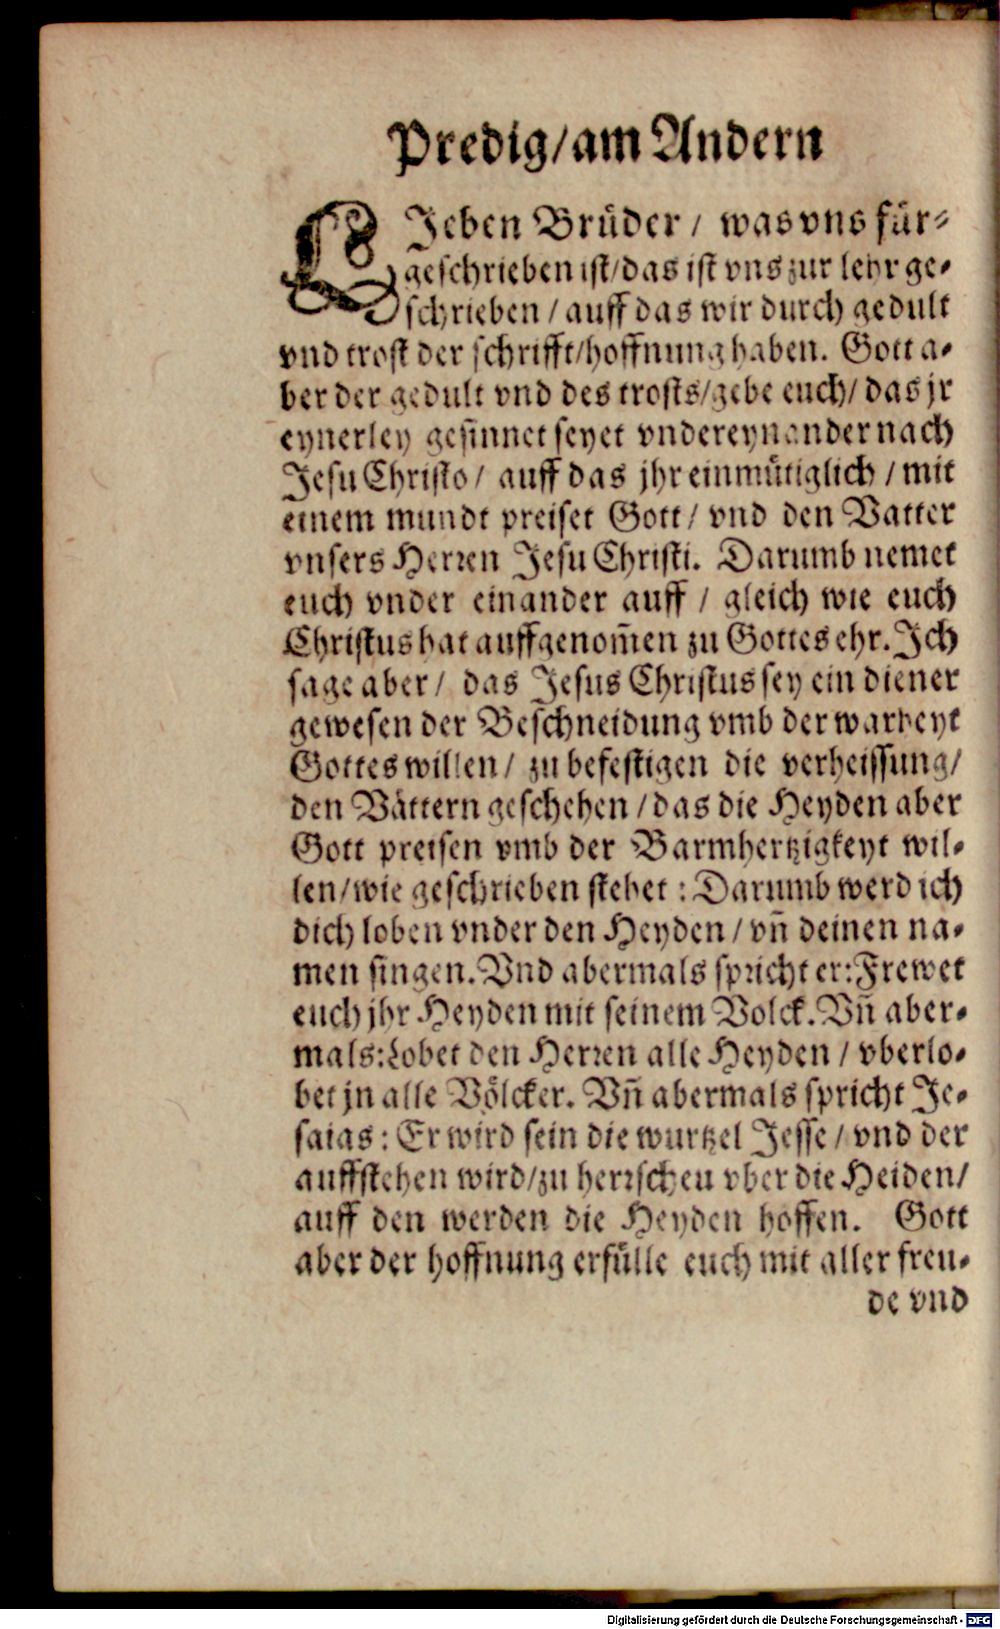 Predig/am Andern
LJeben Brüder / was vns für-
geschrieben ist/das ist vns zur lehr ge-
schrieben / auff das wir durch gedult
vnd trost der schrifft/hoffnung haben. Gott a-
ber der gedult vnd des trosts/gebe euch/ das jr
eynerley gesinnet seyet vndereynander nach
Jesu Christo / auff das jhr einmütiglich / mit
einem mundt preiset Gott / vnd den Vatter
vnsers Herren Jesu Christi. Darumb nemet
euch vnder einander auff / gleich wie euch
Christus hat auffgenom̃en zu Gottes ehr. Jch
sage aber / das Jesus Christus sey ein diener
gewesen der Beschneidung vmb der warheyt
Gottes willen / zu befestigen die verheissung/
den Vättern geschehen / das die Heyden aber
Gott preisen vmb der Barmhertzigkeyt wil-
len/wie geschrieben stehet : Darumb werd ich
dich loben vnder den Heyden / vñ deinen na-
men singen. Vnd abermals spricht er: Frewet
euch jhr Heyden mit seinem Volck. Vñ aber-
mals: Lobet den Herren alle Heyden / vberlo-
bet jn alle Völcker. Vñ abermals spricht Je-
saias : Er wird sein die wurtzel Jesse / vnd der
auffstehen wird/zu herrschen vber die Heiden/
auff den werden die Heyden hoffen. Gott
aber der hoffnung erfülle euch mit aller freu-
de vnd
Digitalisierung gefördert durch die Deutsche Forschungsgemeinschaft - DFG